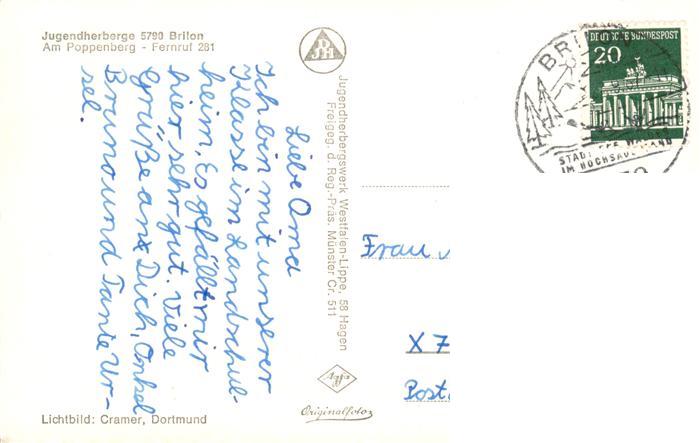 Jugendherberge 5790 Brilon
Am Poppenberg - Fernruf 281
DJH
Liebe Oma
Ich bin mit unserer
Klasse im Landschul-
heim. Es gefällt mir
hier sehr gut. Viele
Grüße an Dich, Onkel
Bruno und Tante Ur-
sel.
Jugendherbergswerk Westfalen-Lippe, 58 Hagen
Freigeg. d. Reg.-Präs. Münster Cr. 511
DEUTSCHE BUNDESPOST
20
STADT DES WALDES
IM HOCHSAUERLAND
Frau
X 7
Post.
Agfa
Originalfoto
Lichtbild: Cramer, Dortmund